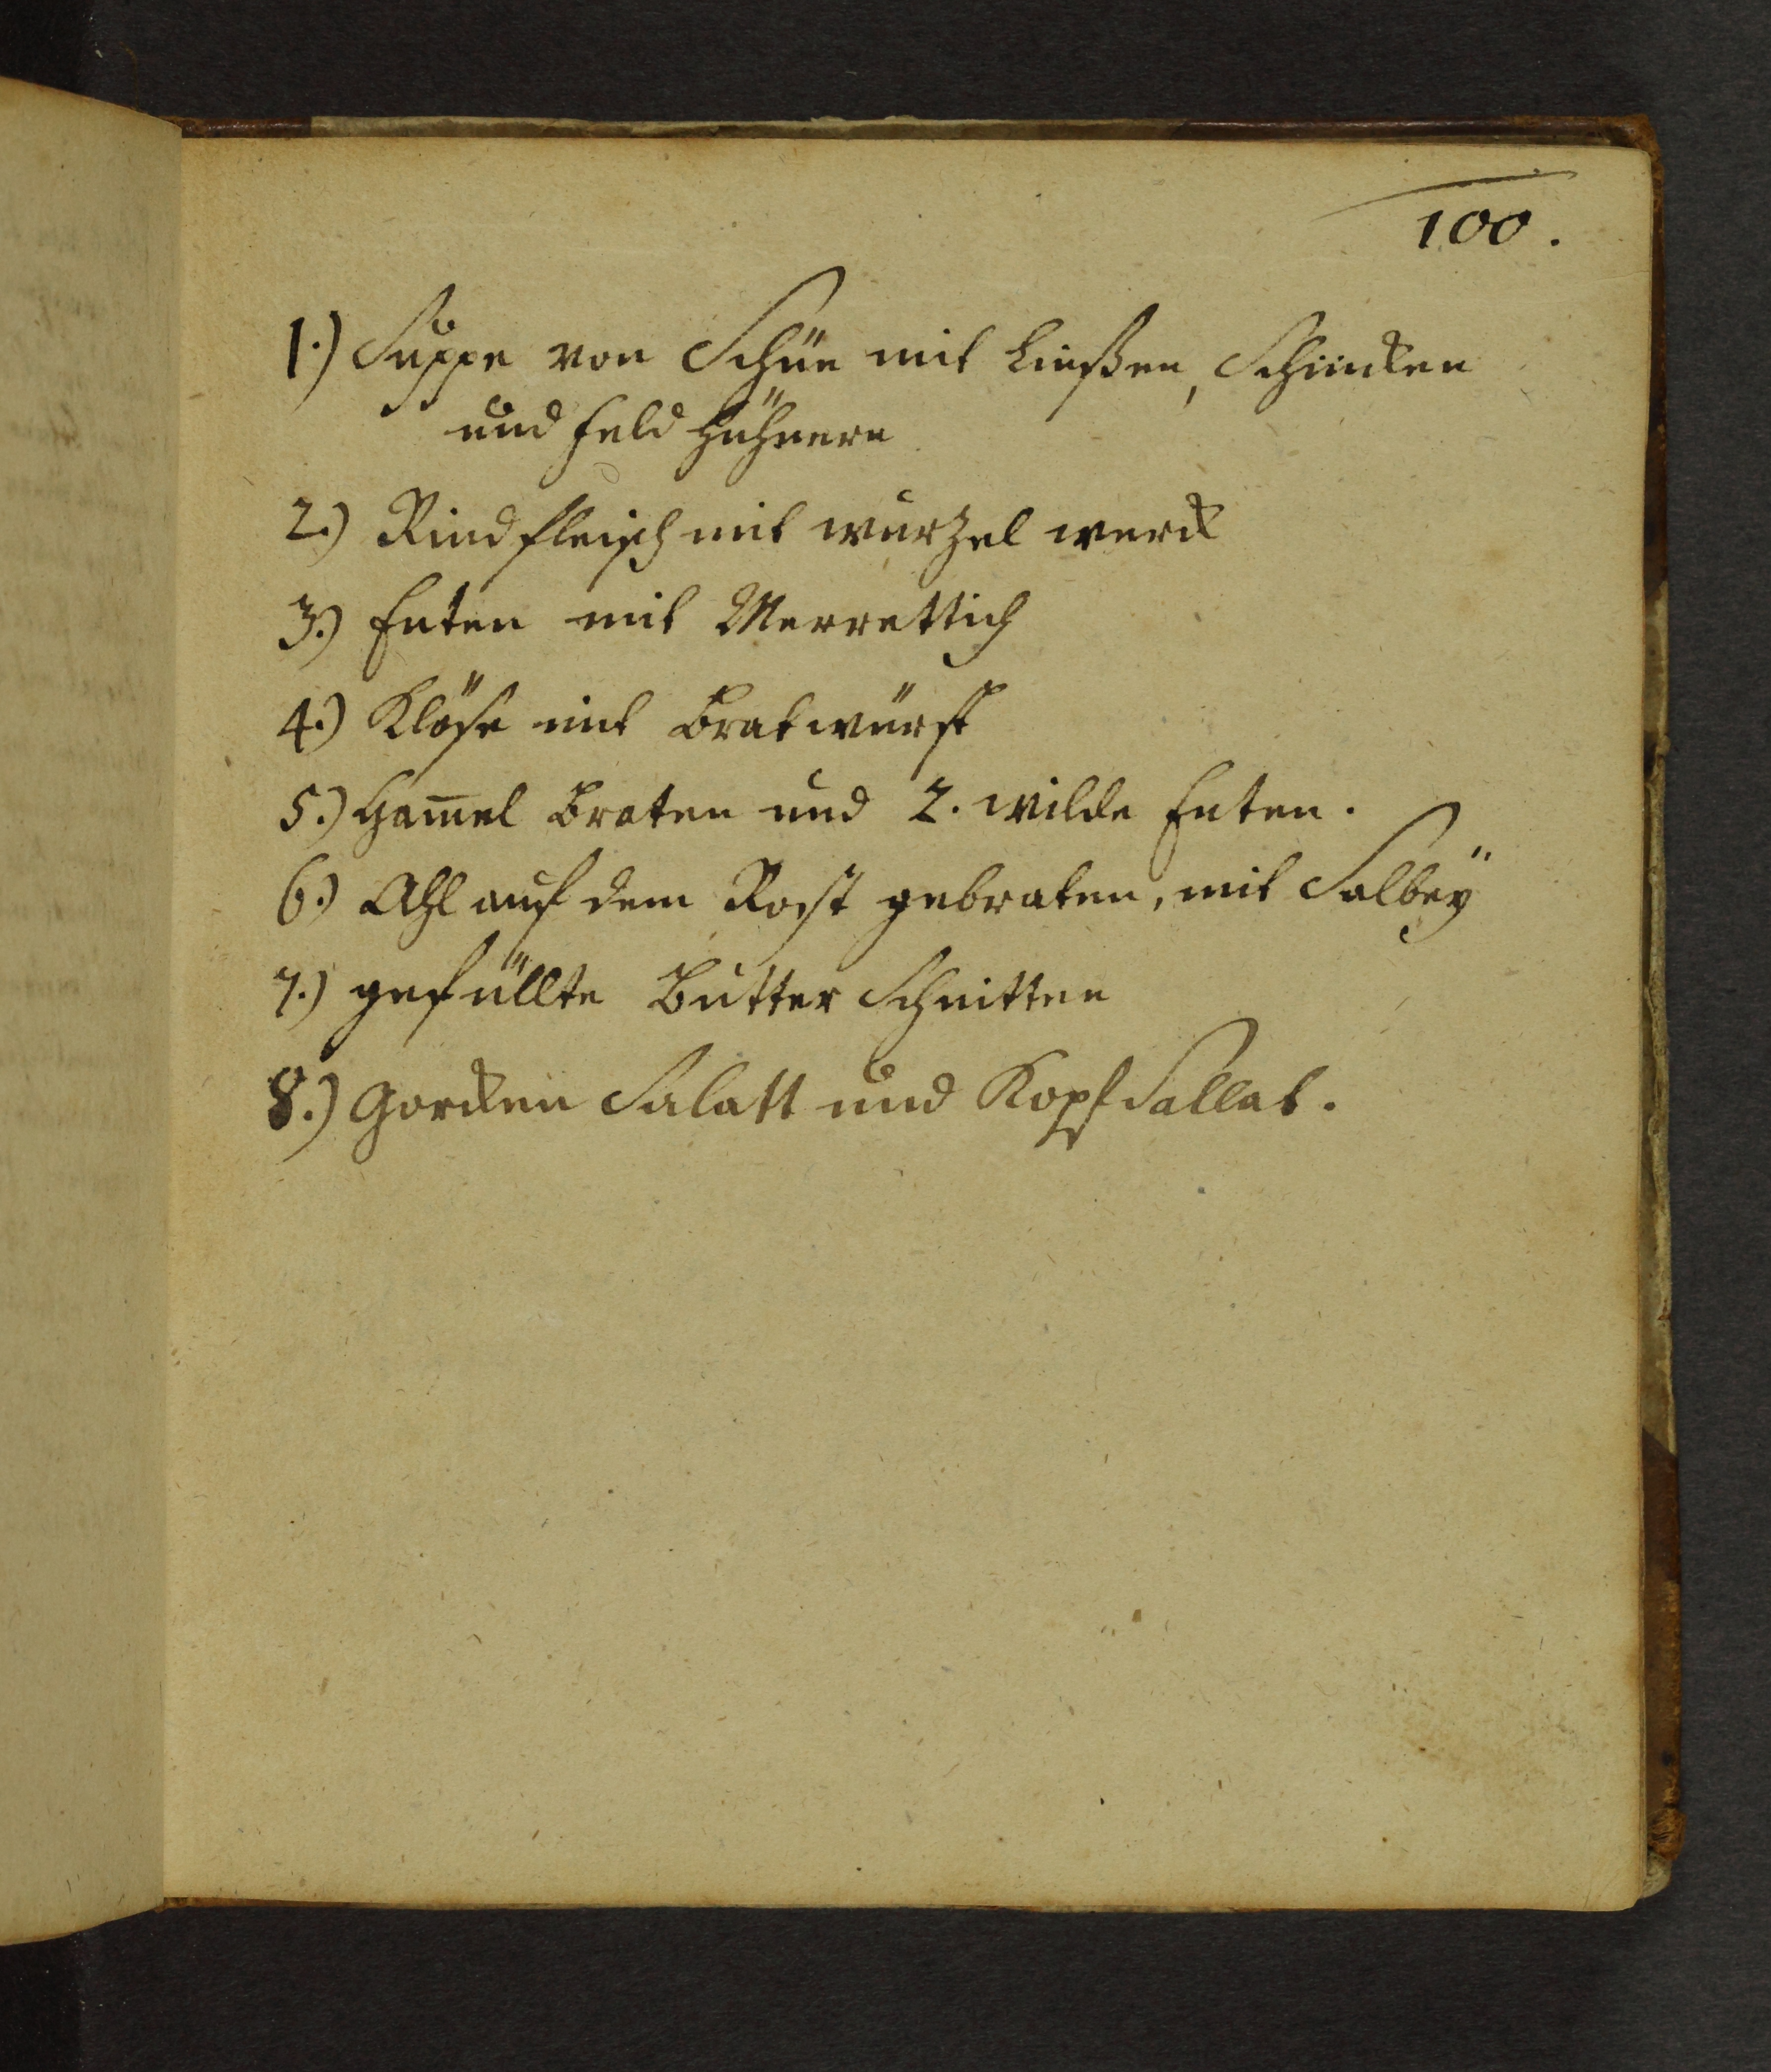 100.
1.) Suppe von Schüe mit Linßen, Schincken
und Feld Hühnern
2.) Rindfleisch mit wurzel werck
3.) Enten mit Merrettich
4.) Klöse mit Bratwürst
5.) Ham̅el Braten und 2. wilde Enten.
6.) Ahl auf dem Rost gebraten, mit Salbeÿ
7.) gefüllte Butter Schnitten
8.) Gorcken Salatt und Kopf Sallat.